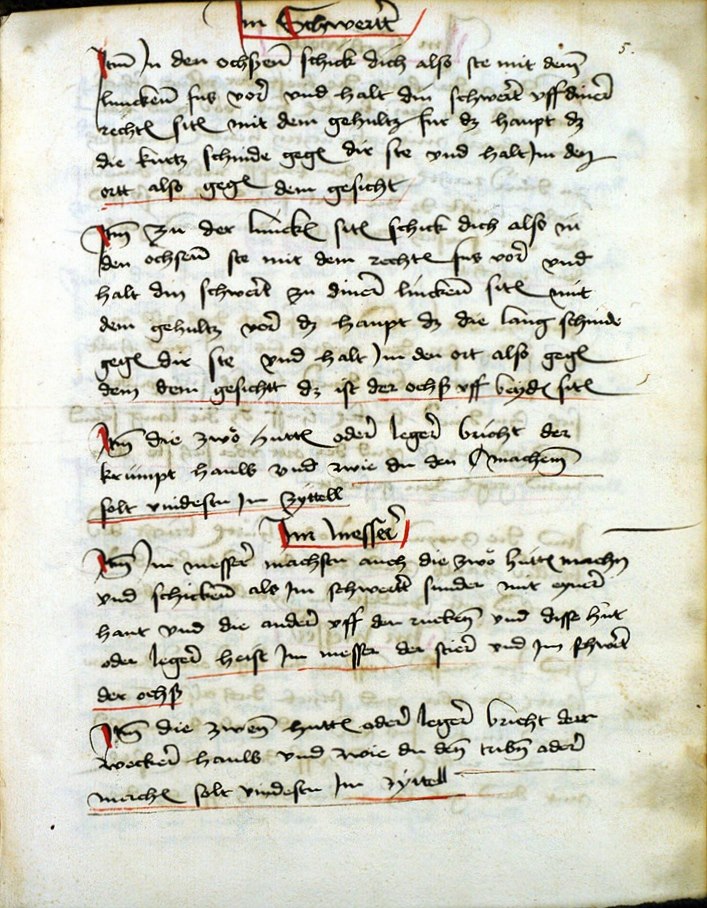 Im Schwertt
5.
Itm In den ochßenn schick dich also ste mit dem
linckenn fus vor vnd halt din schwert vff diner
rechtn sitn mit dem gehultz fur dz haupt dz
die kurtz schinde gegn dir ste vnd halt Im den
ortt also gegn dem gesicht
Itm zu der linckn sitn schick dich also in
den ochsenn ste mit dem rechtn fus vor vnd
halt din schwert zu diner linckenn sitn mit
dem gehultz vor dz haupt dz die lang schinde
gegn dir ste vnd halt Im den ort also gegn
dem dem gesichtt dz ist der ochß vff beydn sitn
Itm die zwo huttn oder leger bricht der
krumpt hauw vnd wie du den machenn
solt vindestu Im zyttell
Im messer
Itm Im messer machstu auch die zwo huttn machn
vnd schickenn als Im schwertt sunder mit eyner
hant vnd die ander vff den ruckenn vnd disse hut
oder leger heist Im messer der stier vnd Im schwert
der ochß
Itm die zwenn huttn oder leger bricht der
wecker hauw vnd wie du den tribn oder
machn solt vindestu Im zyttell